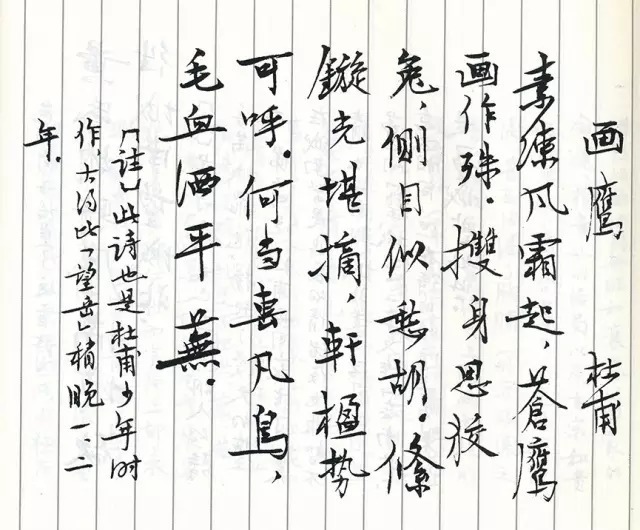 画鹰 杜甫
素练风霜起，蒼鹰
画作殊。㩳身思狡
兔，側目似愁胡。絛
鏇光堪摘，軒楹势
可呼。何当击凡鸟，
毛血洒平蕪。
〔註〕此詩也是杜甫少年时
作，大约比「望岳」稍晚一、二
年。